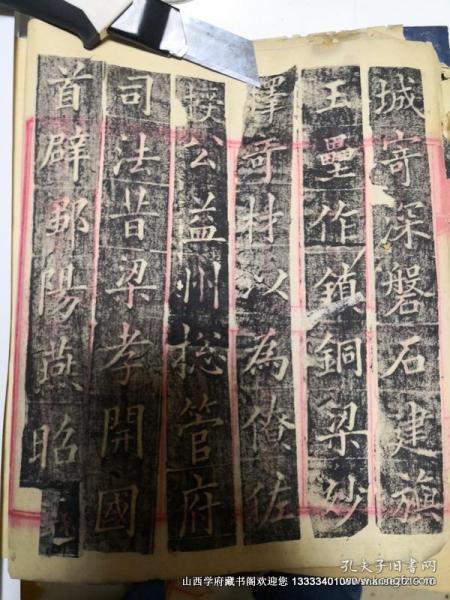 城寄深磐石建旗
玉壘作鎮銅梁妙
擇奇材以為僚佐
授公益州総管府
司法昔梁孝開國
首辟鄒陽燕昭
山西学府藏书阁欢迎您 13333401090
孔夫子旧书网